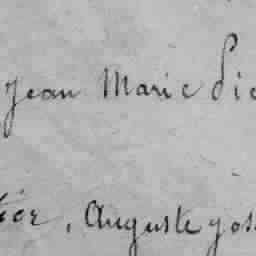 Jean Marie Pie
, Auguste Jos